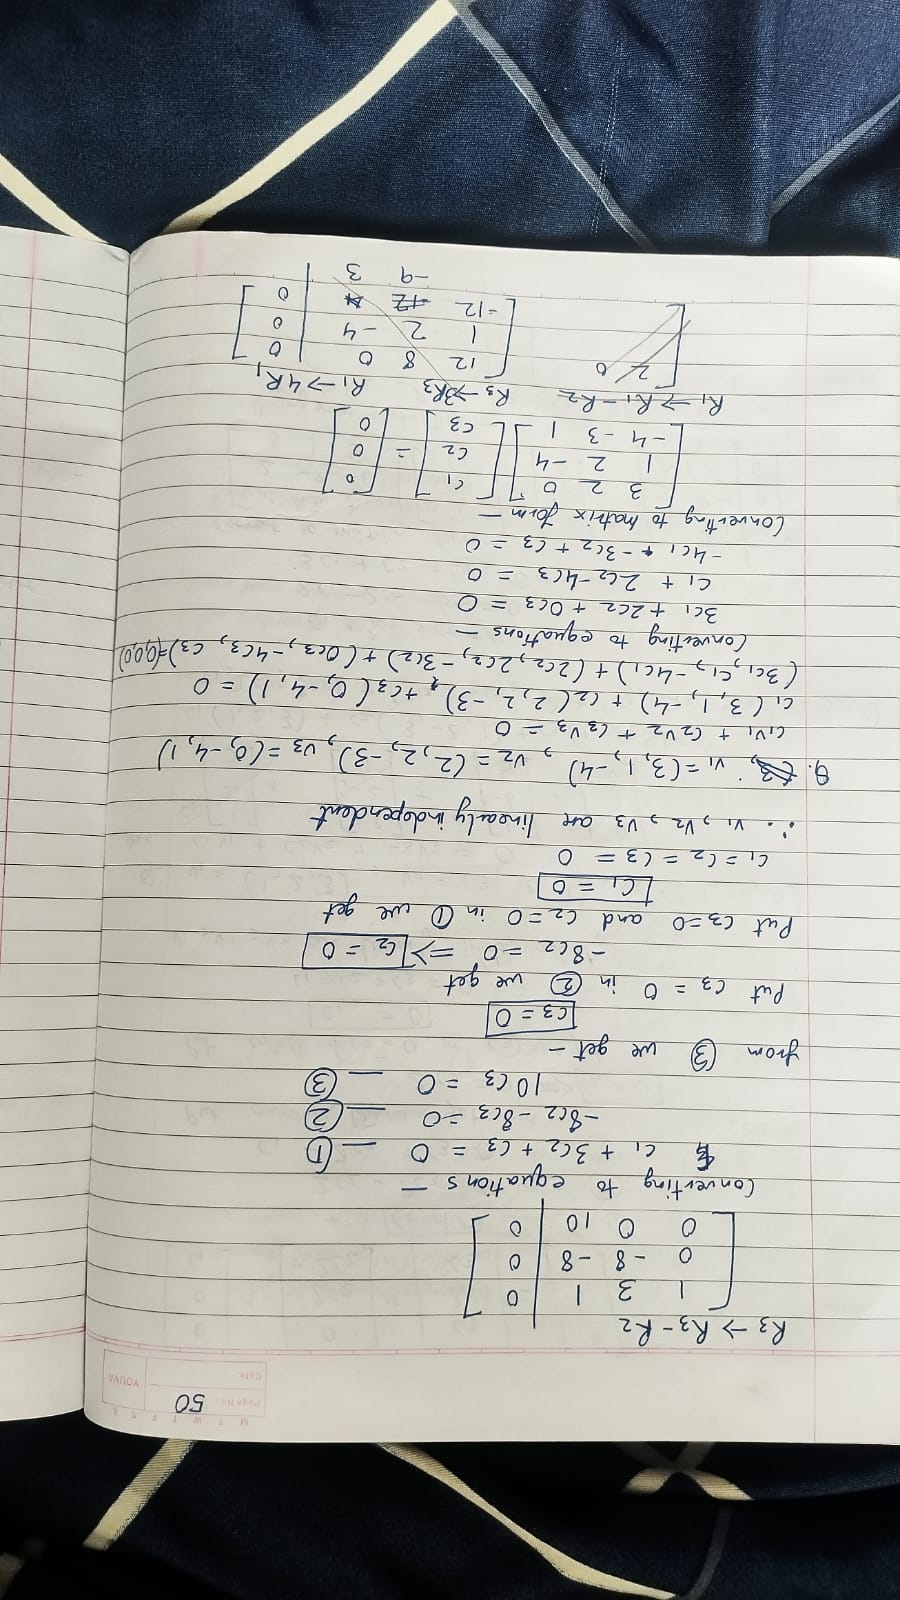 M T W T F S S
Page No. 50
Date.
YOUVA
R3 → R3 - R2
[ 1 3 1 | 0 ]
[ 0 -8 -8 | 0 ]
[ 0 0 10 | 0 ]
Converting to equations —
c1 + 3c2 + c3 = 0 — ①
-8c2 - 8c3 = 0 — ②
10c3 = 0 — ③
from ③ we get —
c3 = 0
Put c3 = 0 in ② we get
-8c2 = 0 => c2 = 0
Put c3=0 and c2=0 in ① we get
c1 = 0
c1 = c2 = c3 = 0
∴ v1, v2, v3 are linearly independent
Q. v1 = (3, 1, -4), v2 = (2, 2, -3), v3 = (0, -4, 1)
c1v1 + c2v2 + c3v3 = 0
c1(3, 1, -4) + c2(2, 2, -3), +c3(0, -4, 1) = 0
(3c1, c1, -4c1) + (2c2, 2c2, -3c2) + (0c3, -4c3, c3)=(0,0,0)
Converting to equations —
3c1 + 2c2 + 0c3 = 0
c1 + 2c2 - 4c3 = 0
-4c1 - 3c2 + c3 = 0
Converting to matrix form —
[ 3 2 0 ] [ c1 ] [ 0 ]
[ 1 2 -4 ] [ c2 ] = [ 0 ]
[ -4 -3 1 ] [ c3 ] [ 0 ]
R1 → R1 - R2 R3 → 3R3 R1 → 4R1
[ 2 0 [ 12 8 0 | 0 ]
[ 1 2 -4 | 0 ]
[ -12 -12 | 0 ]
-9 3